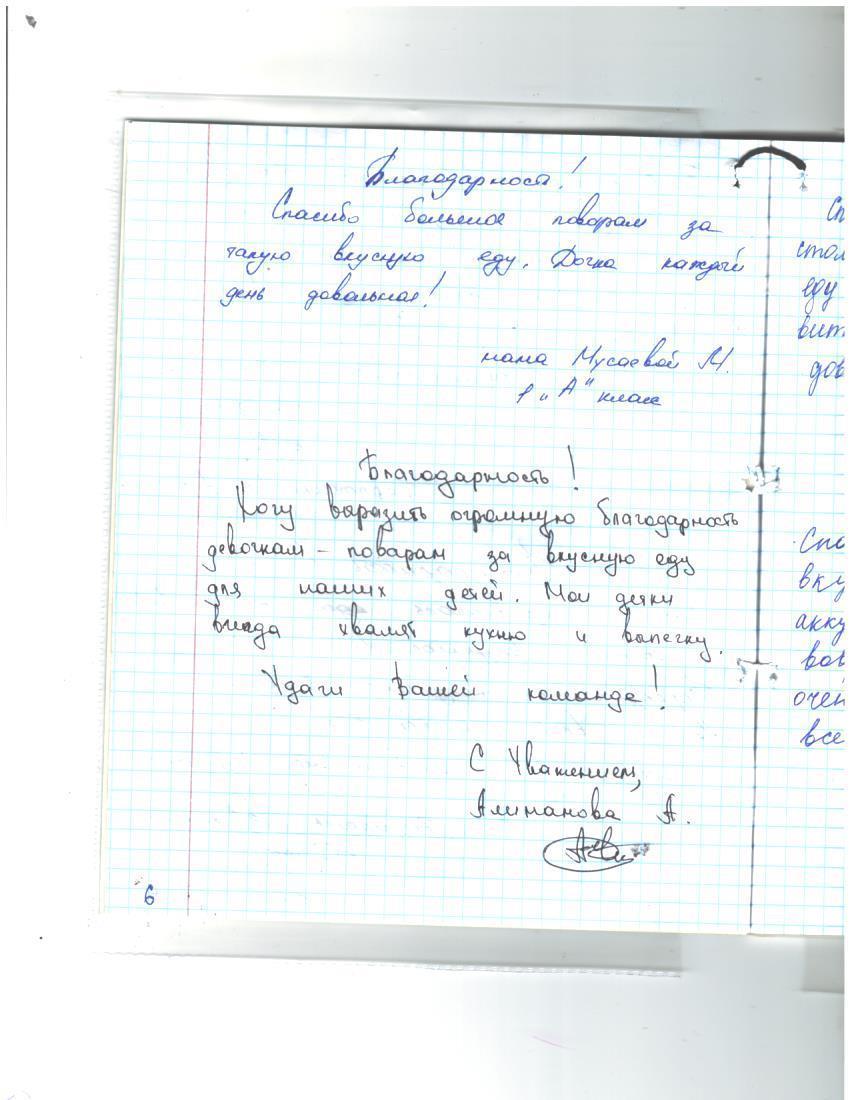 Благодарность!
Спасибо большое поварам за
такую вкусную еду. Дочка каждый
день довольная!
мама Мусаевой М.
1 „А" класс
Благодарность!
Хочу выразить огромную благодарность
девочкам - поварам за вкусную еду
для наших детей. Мои детки
всегда хвалят кухню и выпечку.
Удачи Вашей команде!
С Уважением,
Алиманова А.
6
Сп
стол
еду
вит
дов
Спа
вку
акку
вов
очен
все